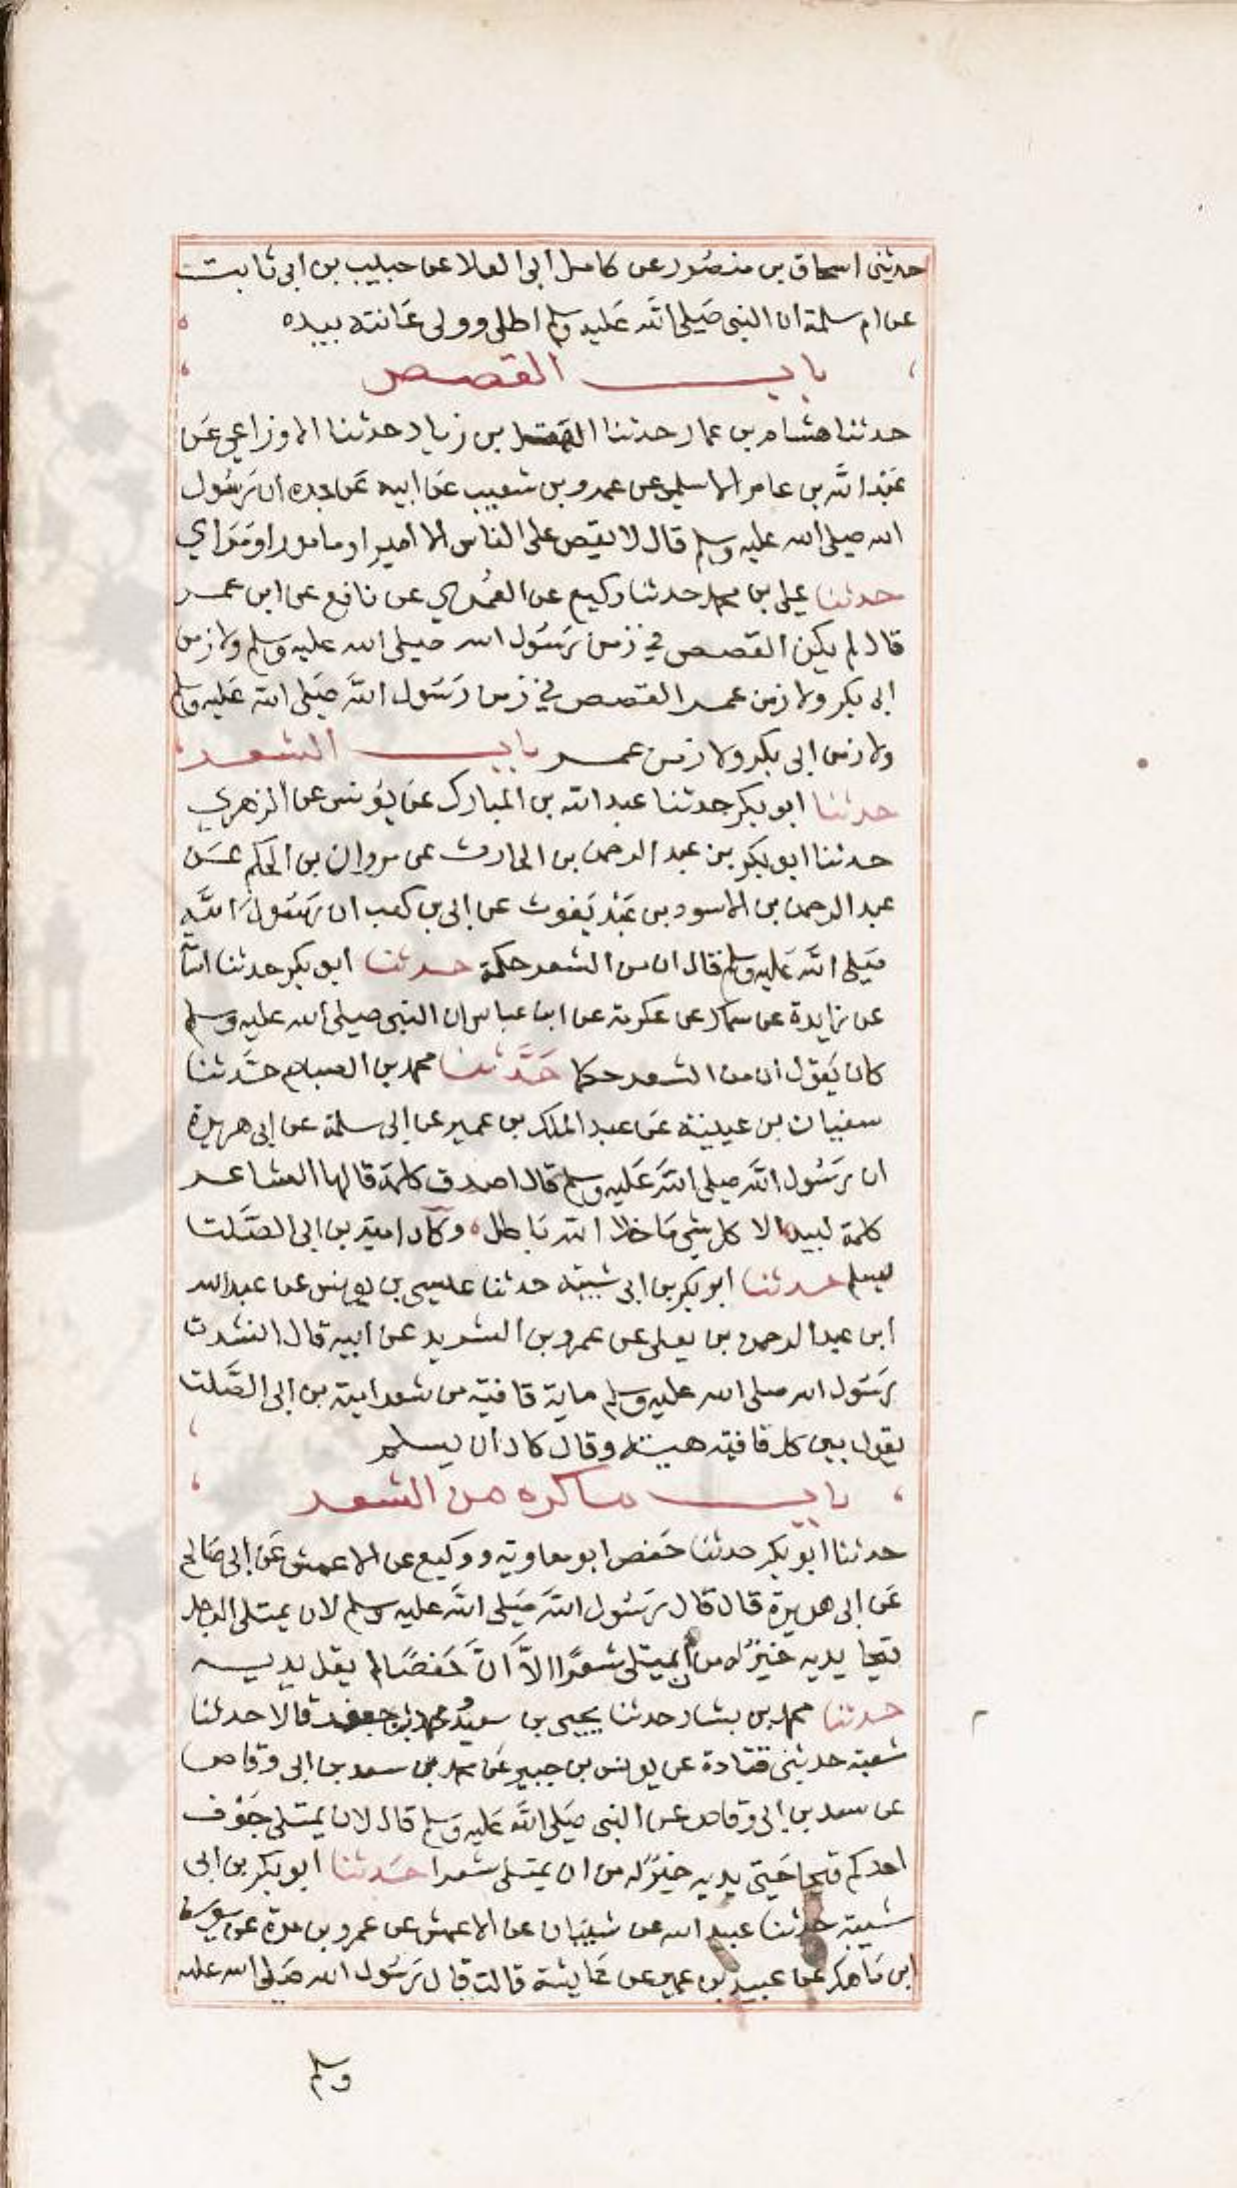 حدثنى اسحاق بن منصور عن كامل ابى العلا عن حبيب بن ابى ثابت
عن ام سلمة ان النبى صلى الله عليه وسلم اطلى وولى عانته بيده
باب القصص
حدثنا هشام بن عمار حدثنا الهقل بن زياد حدثنا الاوزاعى عن
عبد الله بن عامر الاسلمى عن عمرو بن شعيب عن ابيه عن جده ان رسول
الله صلى الله عليه وسلم قال لا يقص على الناس الا امير او مامور او مراي
حدثنا على بن محمد حدثنا وكيع عن العمري عن نافع عن ابن عمر
قال لم يكن القصص في زمن رسول الله صلى الله عليه وسلم ولا زمن
ابى بكر ولا زمن عمر القصص في زمن رسول الله صلى الله عليه وسلم
ولا زمن ابى بكر ولا زمن عمر باب الشعر
حدثنا ابو بكر حدثنا عبد الله بن المبارك عن يونس عن الزهري
حدثنا ابو بكر بن عبد الرحمن بن الحارث عن مروان بن الحكم عن
عبد الرحمن بن الاسود بن عبد يغوث عن ابى بن كعب ان رسول الله
صلى الله عليه وسلم قال ان من الشعر حكمة حدثنا ابو بكر حدثنا
عن زايدة عن سماك عن عكرمة عن ابن عباس ان النبى صلى الله عليه وسلم
كان يقول ان من الشعر حكما حدثنا محمد بن الصباح حدثنا
سفيان بن عيينة عن عبد الملك بن عمير عن ابى سلمة عن ابى هريرة
ان رسول الله صلى الله عليه وسلم قال اصدق كلمة قالها الشاعر
كلمة لبيد الا كل شي ما خلا الله باطل وكاد امية بن ابى الصلت
يسلم حدثنا ابو بكر بن ابى شيبة حدثنا عيسى بن يونس عن عبد الله
ابن عبد الرحمن بن يعلى عن عمرو بن الشريد عن ابيه قال انشدت
رسول الله صلى الله عليه وسلم ماية قافية من شعر امية بن ابى الصلت
يقول بين كل قافية هيه وقال كاد ان يسلم
باب ما كره من الشعر
حدثنا ابو بكر حدثنا حفص ابو معاوية ووكيع عن الاعمش عن ابى صالح
عن ابى هريرة قال قال رسول الله صلى الله عليه وسلم لان يمتلى الرجل
قيحا يريه خير له من ان يمتلى شعرا الا ان حفصا لم يقل يريه
حدثنا محمد بن بشار حدثنا يحيى بن سعيد ومحمد بن جعفر قالا حدثنا
شعبة حدثنى قتادة عن يونس بن جبير عن محمد بن سعد بن ابى وقاص
عن سعد بن ابى وقاص عن النبى صلى الله عليه وسلم قال لان يمتلى جوف
احدكم قيحا حتى يريه خير له من ان يمتلى شعرا حدثنا ابو بكر بن ابى
شيبة حدثنا عبيد الله عن شيبان عن الاعمش عن عمرو بن مرة عن يوسف
ابن ماهك عن عبيد بن عمير عن عايشة قالت قال رسول الله صلى الله عليه
وسلم